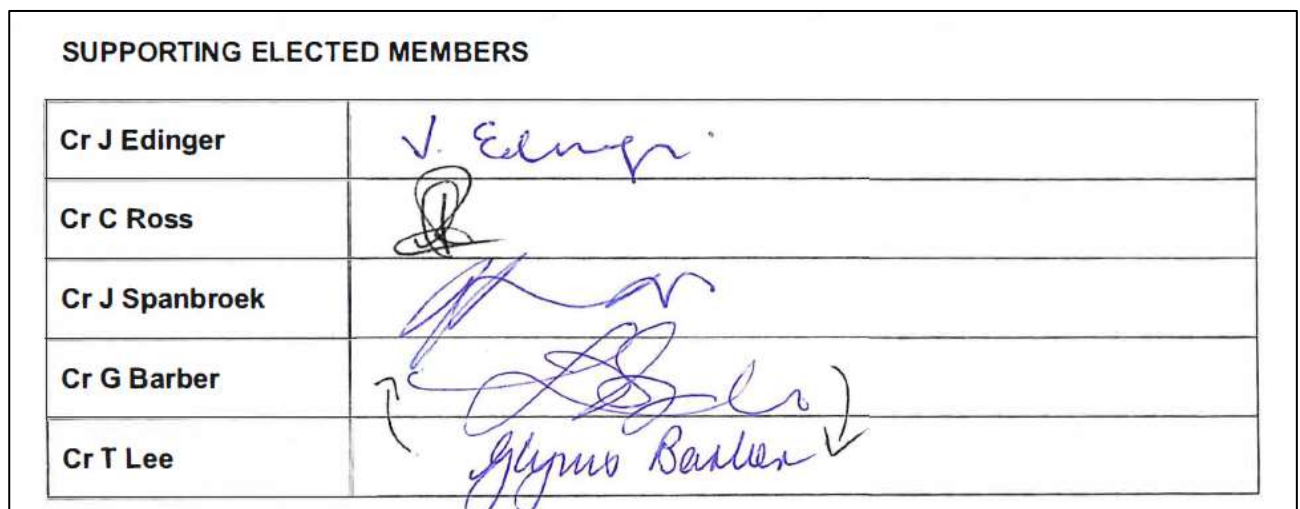 SUPPORTING ELECTED MEMBERS
Cr J Edinger
Cr C Ross
Cr J Spanbroek
Cr G Barber
Cr T Lee Glynis Barber